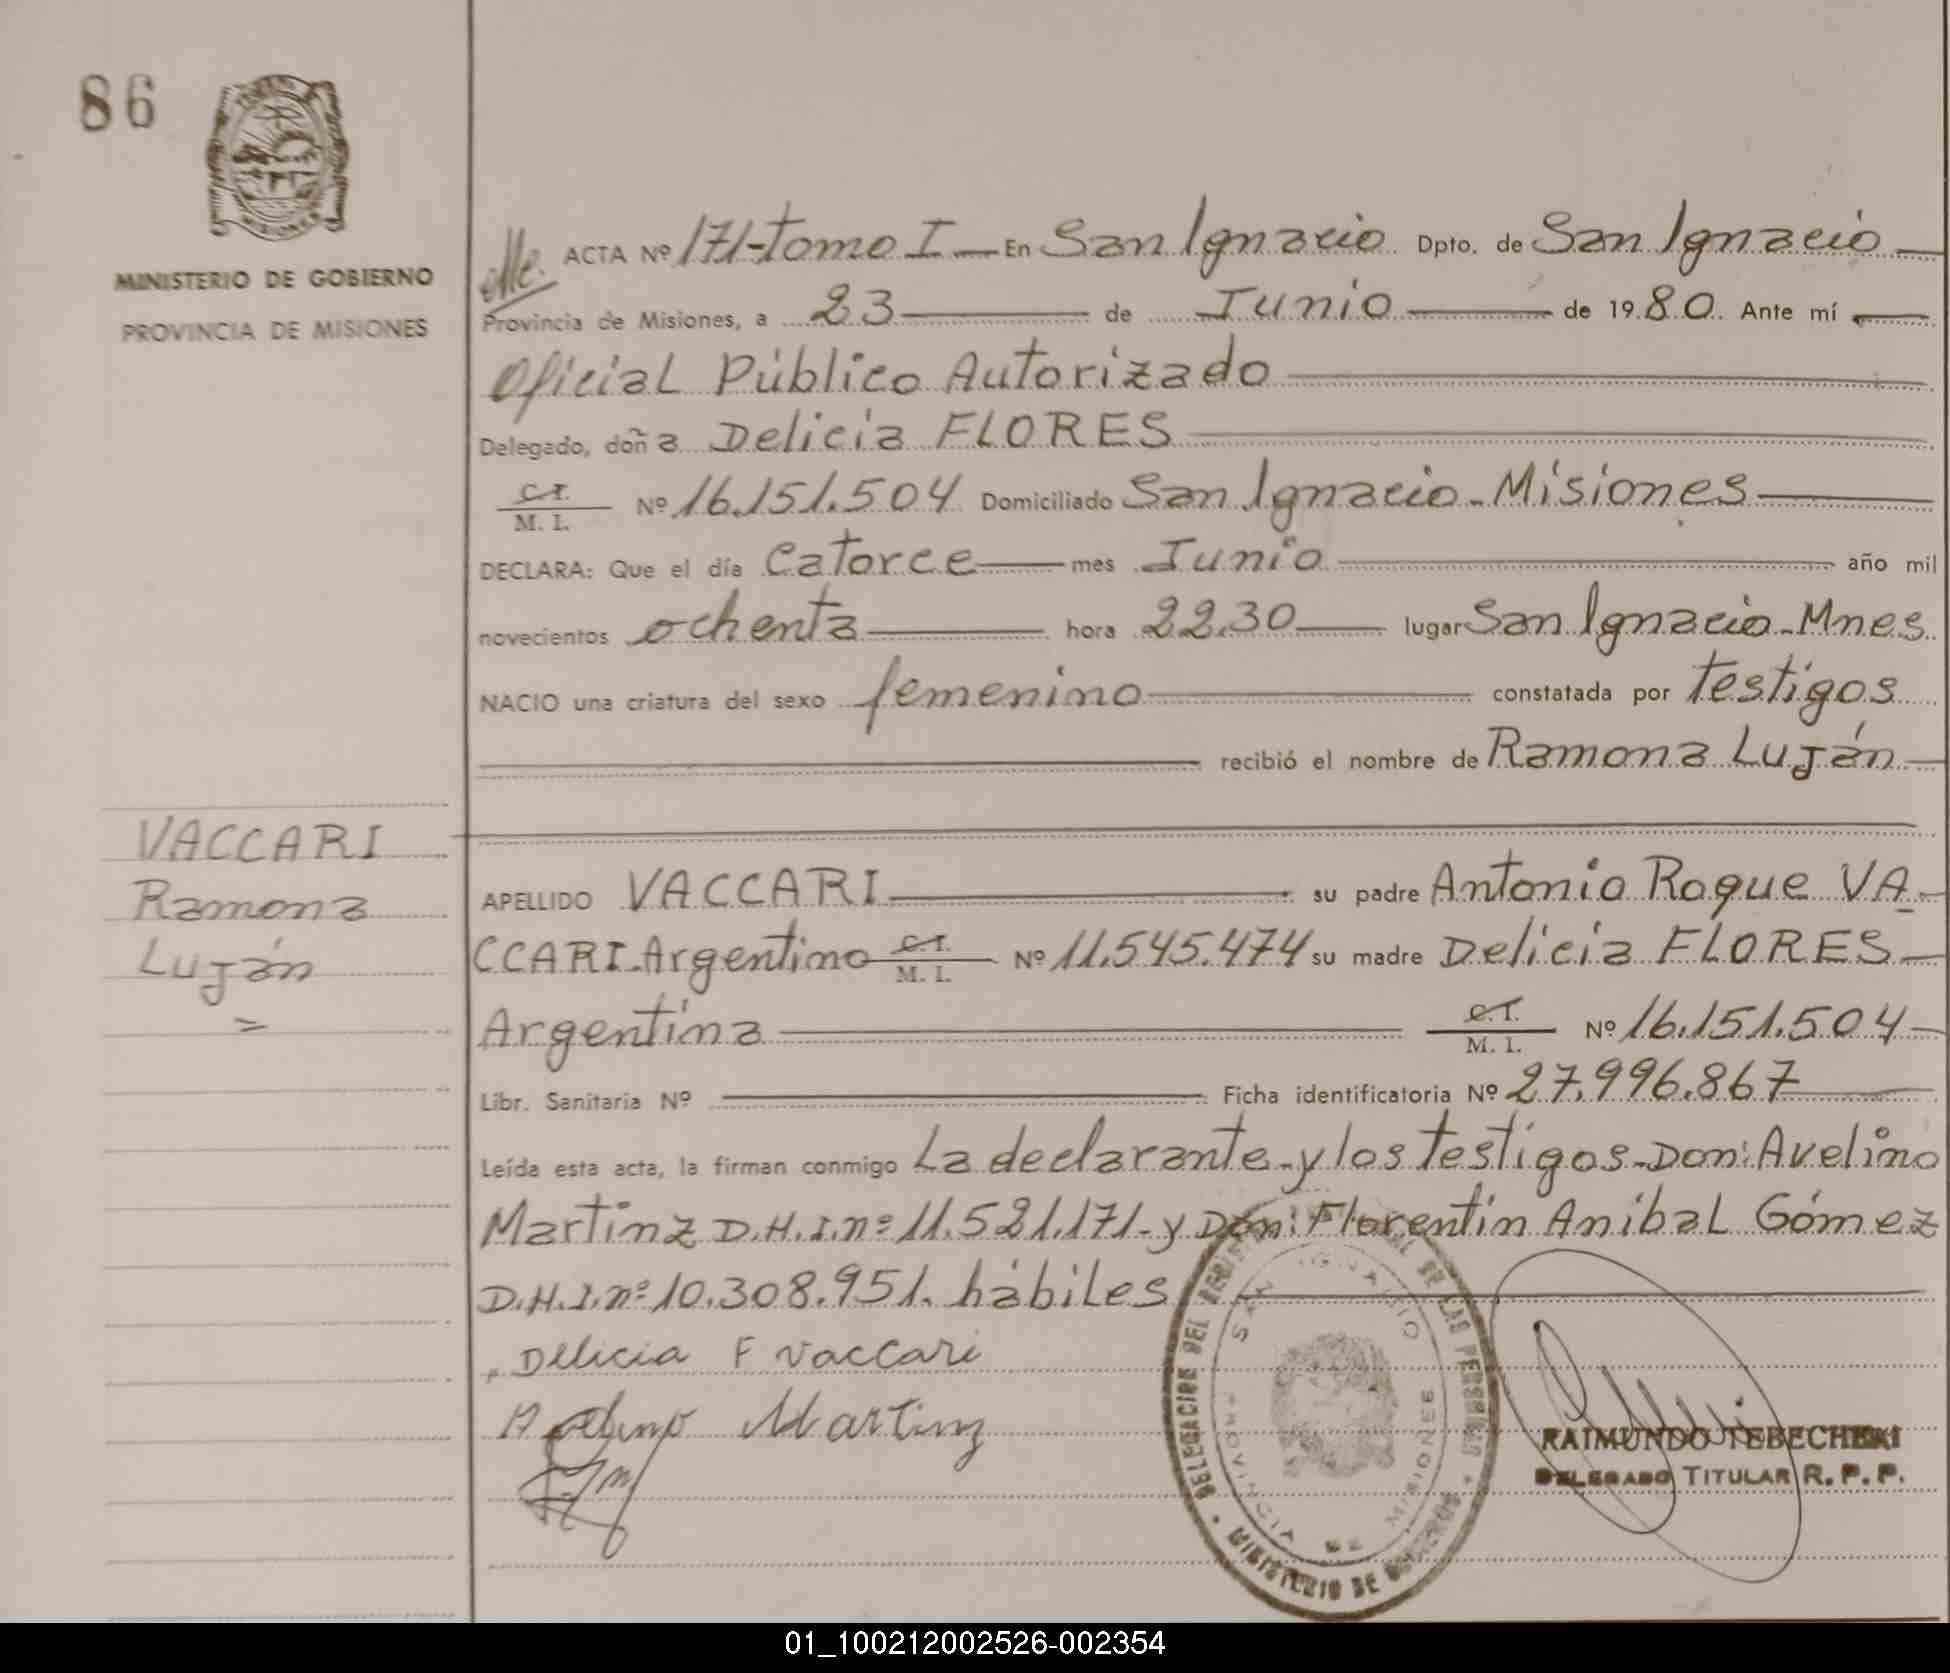 86
MISIONES
MINISTERIO DE GOBIERNO
PROVINCIA DE MISIONES
VACCARI
Ramona
Luján
=
ACTA Nº 171-Tomo I — En San Ignacio Dpto. de San Ignacio —
Provincia de Misiones, a 23 — de Junio — de 1980. Ante mí —
Oficial Público Autorizado —
Delegado, doña Delicia FLORES —
C.I. / M. I. Nº 16.151.504 Domiciliado San Ignacio-Misiones —
DECLARA: Que el día Catorce — mes Junio — año mil
novecientos ochenta — hora 22.30 — lugar San Ignacio-Mnes.
NACIO una criatura del sexo femenino — constatada por testigos
— recibió el nombre de Ramona Luján —
APELLIDO VACCARI — su padre Antonio Roque VA-
CCARI-Argentino C.I. / M. I. Nº 11.545.474 su madre Delicia FLORES —
Argentina — C.I. / M. I. Nº 16.151.504 —
Libr. Sanitaria Nº — Ficha identificatoria Nº 27.996.867 —
Leída esta acta, la firman conmigo La declarante-y los testigos-Don: Avelino
Martinz D.H.I.nº 11.521.171- y Don: Florentín Anibal Gómez
D.H.I.nº 10.308.951. hábiles —
Delicia F Vaccari
Avelino Martinz
DELEGACION DEL REGISTRO DE LAS PERSONAS
SAN IGNACIO
PROVINCIA DE MISIONES
MINISTERIO DE GOBIERNO
RAIMUNDO TEBECHERAI
DELEGADO TITULAR R. P. P.
01_100212002526-002354